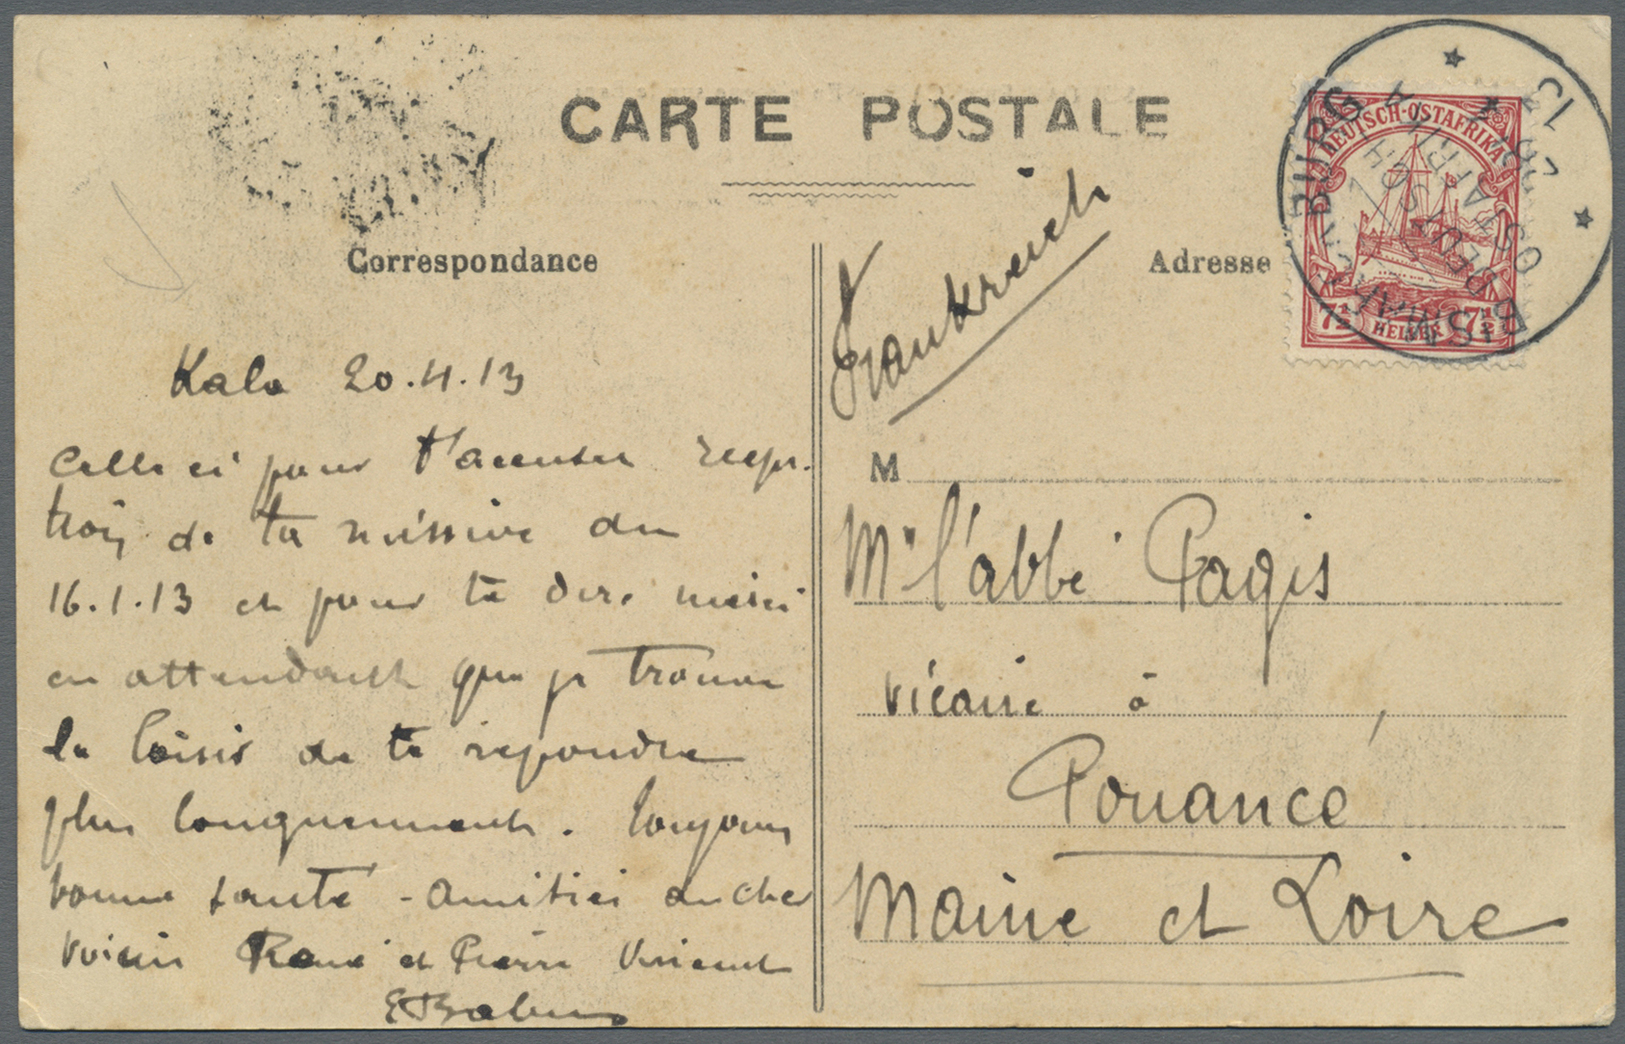 CARTE POSTALE
Correspondance
Adresse
DEUTSCH-OSTAFRIKA
7½ HELLER 7½
BISMARCKBURG
DEUTSCH
OSTAFRIKA
Frankreich
Kala 20.4.13
Celle ci pour t'accuser récep-
tion de ta missive du
16.1.13 et pour te dire merci
en attendant que je trouve
le loisir de te repondre
plus longuement. Toujours
bonne santé - amitiés au cher
voisin René et Pierre Vincent
M
Mr l'abbé Pagis
vicaire à
Pouancé
Maine et Loire